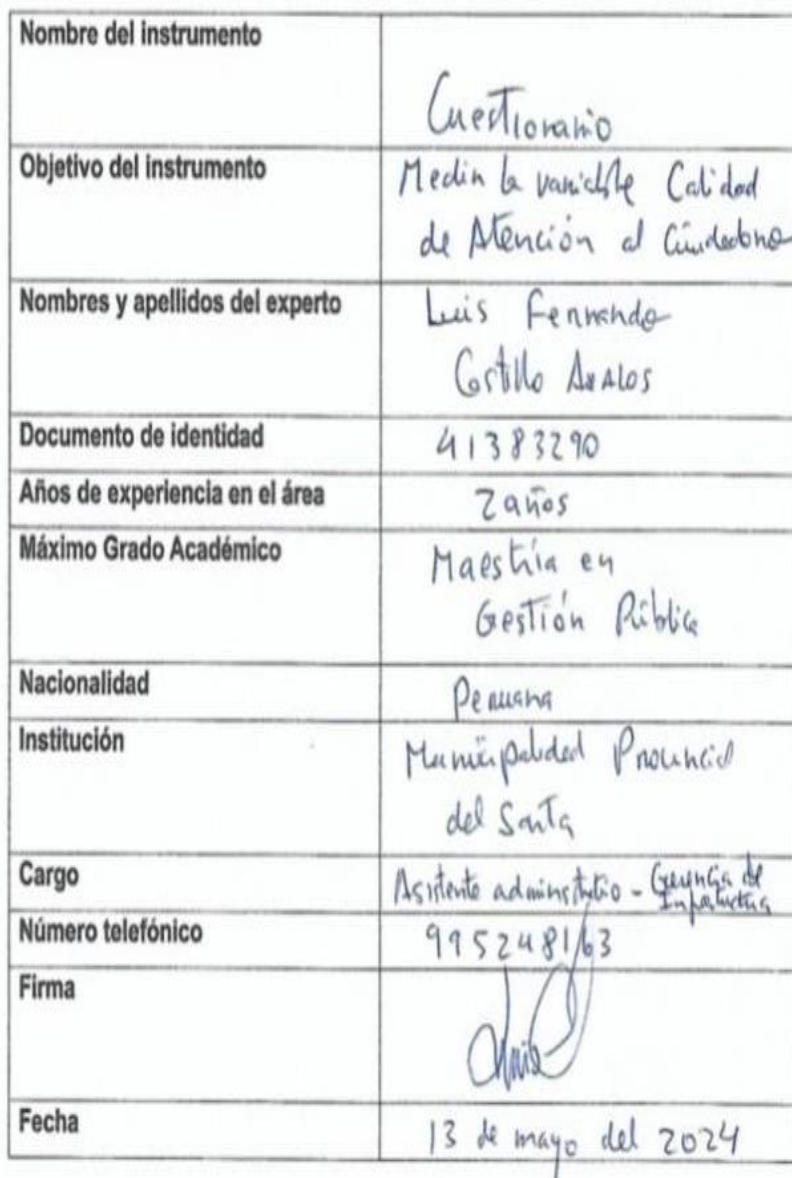 Nombre del instrumento
Cuestionario
Objetivo del instrumento
Medir la variable Calidad
de Atención al Ciudadano
Nombres y apellidos del experto
Luis Fernando
Castillo Avalos
Documento de identidad
41383290
Años de experiencia en el área
2 años
Máximo Grado Académico
Maestría en
Gestión Pública
Nacionalidad
Peruana
Institución
Municipalidad Provincial
del Santa
Cargo
Asistente administrativo - Gerencia de
Infraestructura
Número telefónico
995248163
Firma
Fecha
13 de mayo del 2024